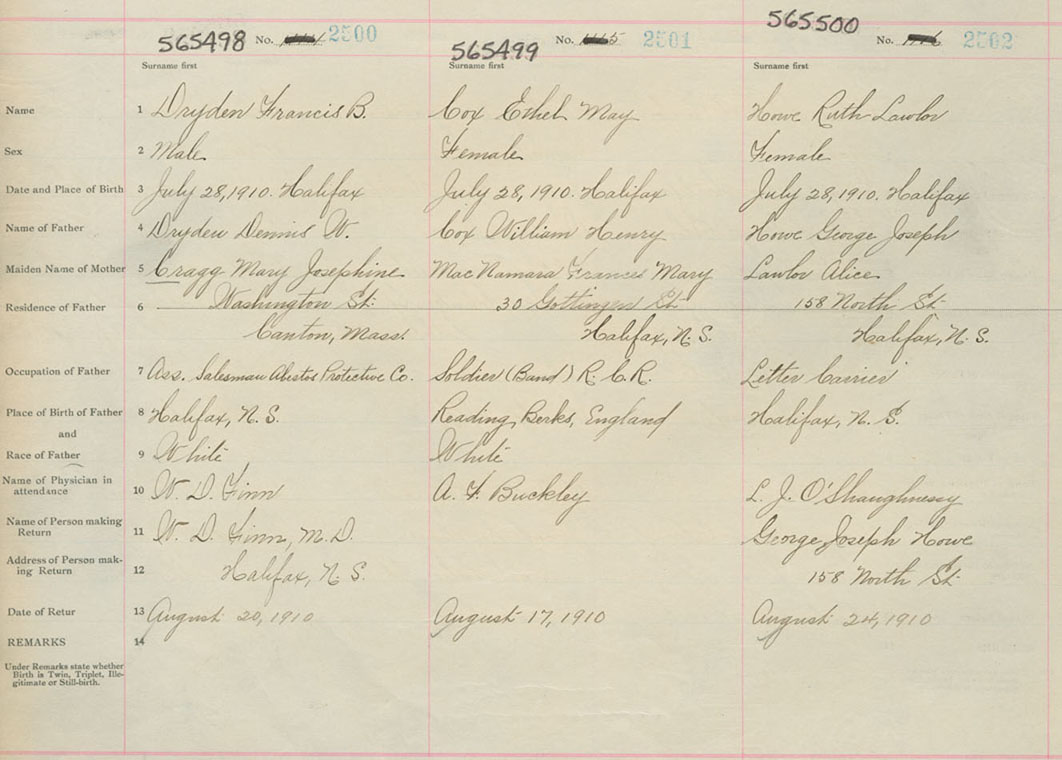 565498 No. 2500
565499 No. 2501
565500 No. 2502
Surname first Surname first Surname first
Name 1 Dryden Francis B. Cox Ethel May Howe Ruth Lawlor
Sex 2 Male Female Female
Date and Place of Birth 3 July 28, 1910. Halifax July 28, 1910. Halifax July 28, 1910. Halifax
Name of Father 4 Dryden Dennis W. Cox William Henry Howe George Joseph
Maiden Name of Mother 5 Cragg Mary Josephine MacNamara Frances Mary Lawlor Alice
Residence of Father 6 Washington St. 30 Gottingen St. 158 North St.
Canton, Mass. Halifax, N.S. Halifax, N.S.
Occupation of Father 7 Ass. Salesman Abistos Protective Co. Soldier (Band) R.C.R. Letter Carrier
Place of Birth of Father 8 Halifax, N.S. Reading, Berks, England Halifax, N.S.
and
Race of Father 9 White White
Name of Physician in
attendance 10 W. D. Finn A. F. Buckley L. J. O'Shaughnessy
Name of Person making
Return 11 W. D. Finn, M.D. George Joseph Howe
Address of Person mak-
ing Return 12 Halifax, N.S. 158 North St.
Date of Retur 13 August 20, 1910 August 17, 1910 August 24, 1910
REMARKS 14
Under Remarks state whether
Birth is Twin, Triplet, Ille-
gitimate or Still-birth.